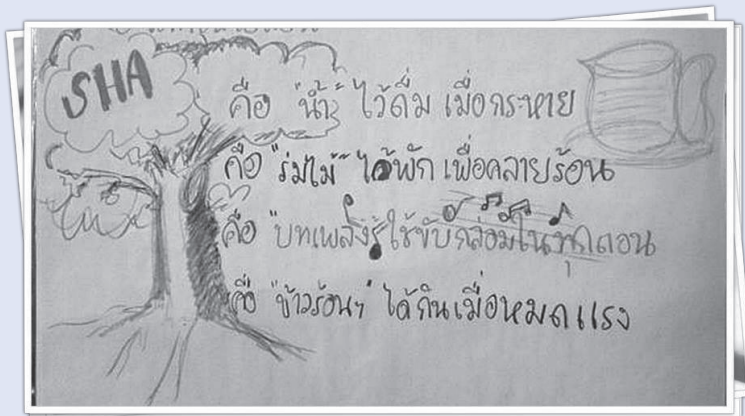 SHA
คือ "น้ำ" ไว้ดื่ม เมื่อกระหาย
คือ "ร่มไม้" ได้พัก เพื่อคลายร้อน
คือ "บทเพลง" รู้ใช้ขับกล่อมในทุกตอน
คือ "ข้าวร้อนๆ" ได้กินเมื่อหมดแรง